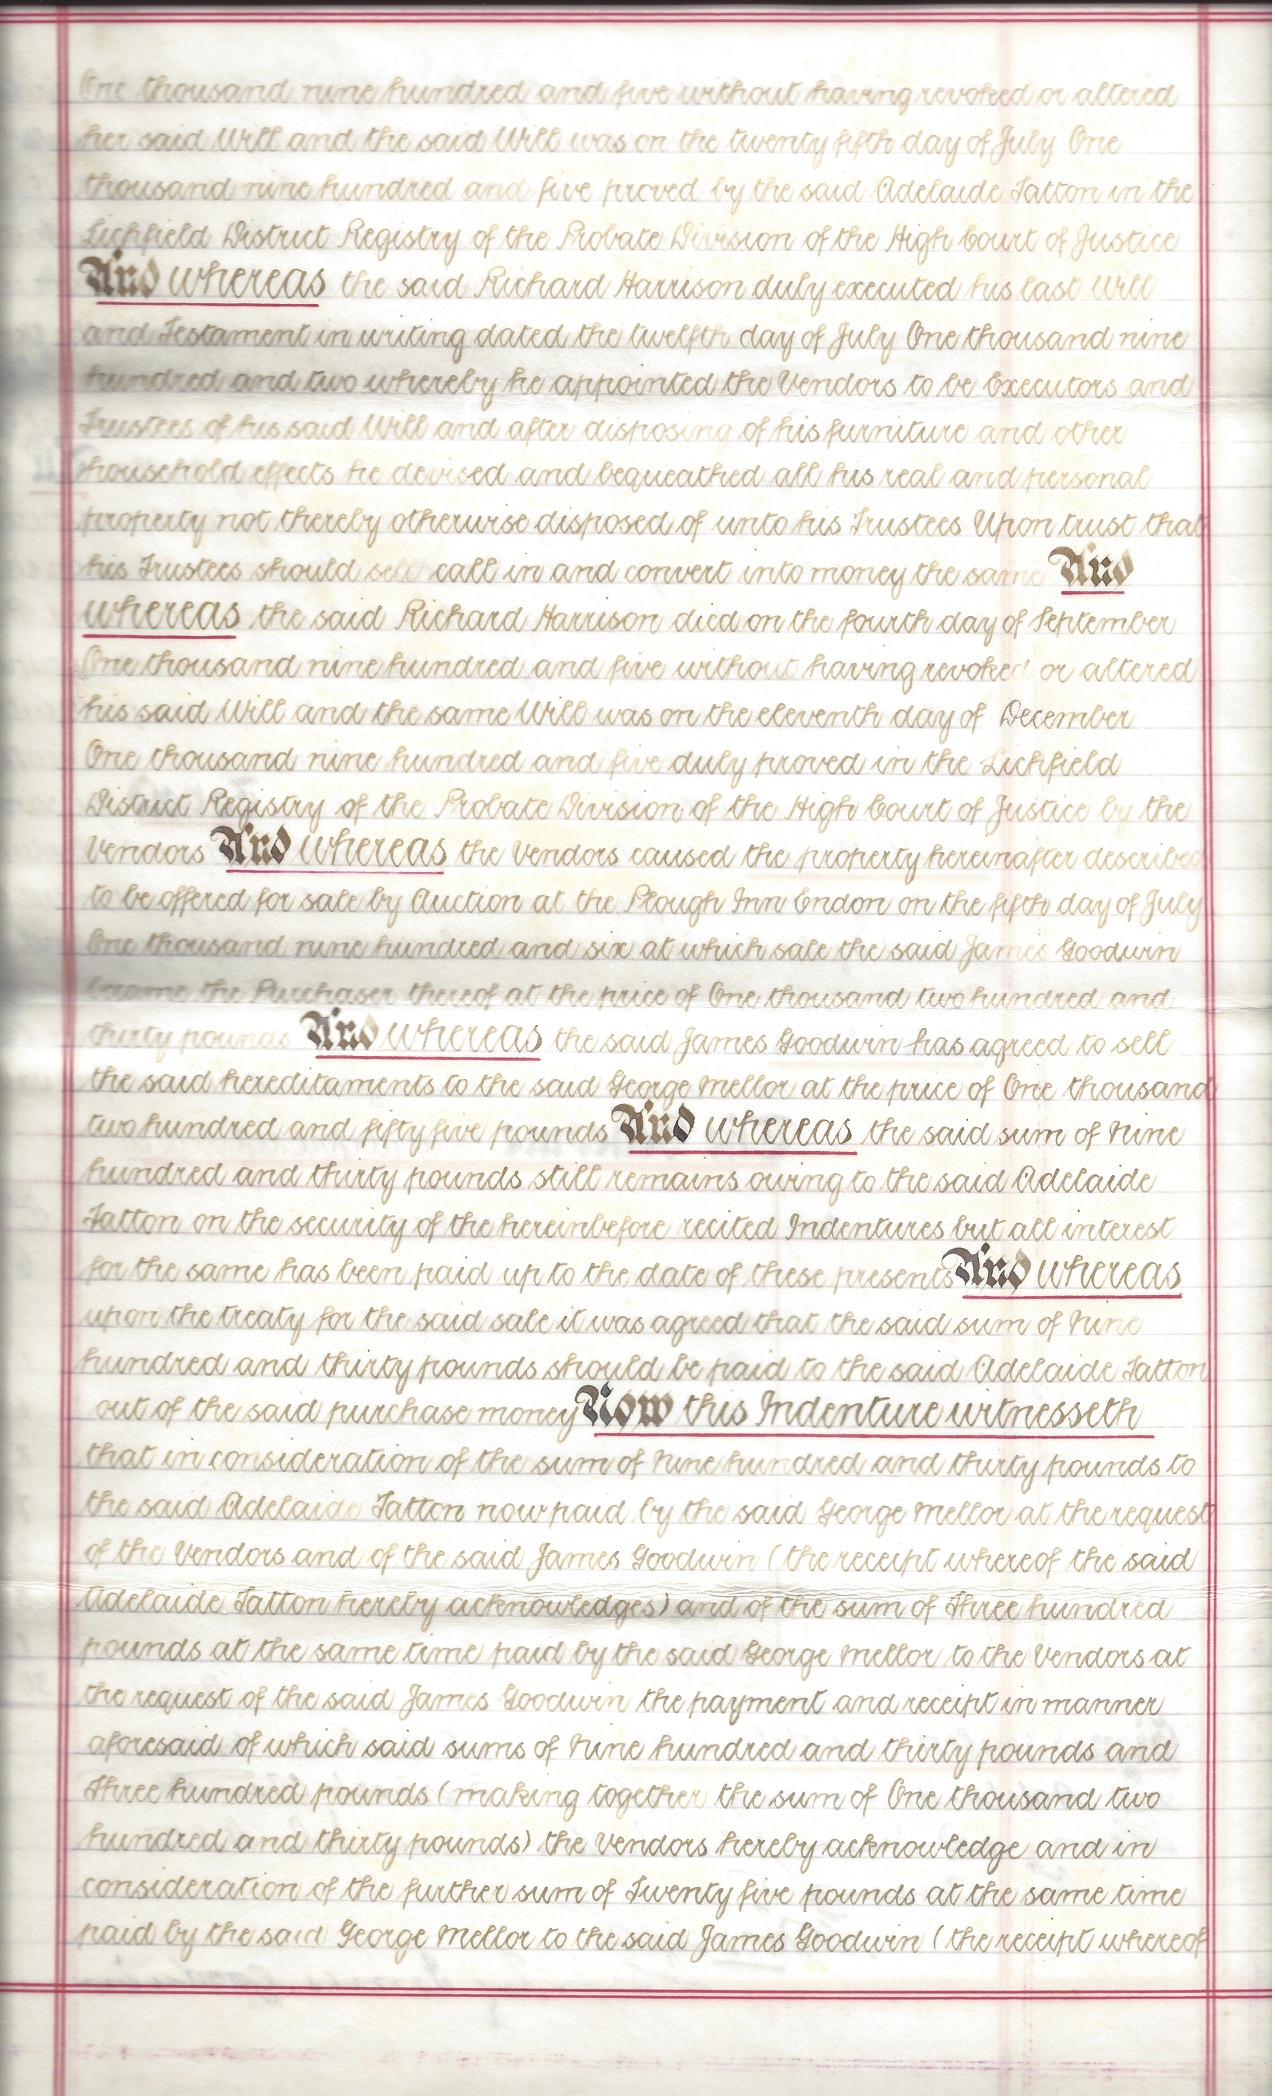 One thousand nine hundred and five without having revoked or altered
her said Will and the said Will was on the twenty fifth day of July One
thousand nine hundred and five proved by the said Adelaide Tatton in the
Lichfield District Registry of the Probate Division of the High Court of Justice
And whereas the said Richard Harrison duly executed his last Will
and Testament in writing dated the twelfth day of July One thousand nine
hundred and two whereby he appointed the Vendors to be Executors and
Trustees of his said Will and after disposing of his furniture and other
household effects he devised and bequeathed all his real and personal
property not thereby otherwise disposed of unto his Trustees Upon trust that
his Trustees should sell call in and convert into money the same And
whereas the said Richard Harrison died on the fourth day of September
One thousand nine hundred and five without having revoked or altered
his said Will and the same Will was on the eleventh day of December
One thousand nine hundred and five duly proved in the Lichfield
District Registry of the Probate Division of the High Court of Justice by the
Vendors And whereas the Vendors caused the property hereinafter described
to be offered for sale by Auction at the Plough Inn Endon on the fifth day of July
One thousand nine hundred and six at which sale the said James Goodwin
became the Purchaser thereof at the price of One thousand two hundred and
thirty pounds And whereas the said James Goodwin has agreed to sell
the said hereditaments to the said George Mellor at the price of One thousand
two hundred and fifty five pounds And whereas the said sum of Nine
hundred and thirty pounds still remains owing to the said Adelaide
Tatton on the security of the hereinbefore recited Indentures but all interest
for the same has been paid up to the date of these presents And whereas
upon the treaty for the said sale it was agreed that the said sum of Nine
hundred and thirty pounds should be paid to the said Adelaide Tatton
out of the said purchase money Now this Indenture witnesseth
that in consideration of the sum of Nine hundred and thirty pounds to
the said Adelaide Tatton now paid by the said George Mellor at the request
of the Vendors and of the said James Goodwin (the receipt whereof the said
Adelaide Tatton hereby acknowledges) and of the sum of Three hundred
pounds at the same time paid by the said George Mellor to the Vendors at
the request of the said James Goodwin the payment and receipt in manner
aforesaid of which said sums of Nine hundred and thirty pounds and
Three hundred pounds (making together the sum of One thousand two
hundred and thirty pounds) the Vendors hereby acknowledge and in
consideration of the further sum of Twenty five pounds at the same time
paid by the said George Mellor to the said James Goodwin (the receipt whereof